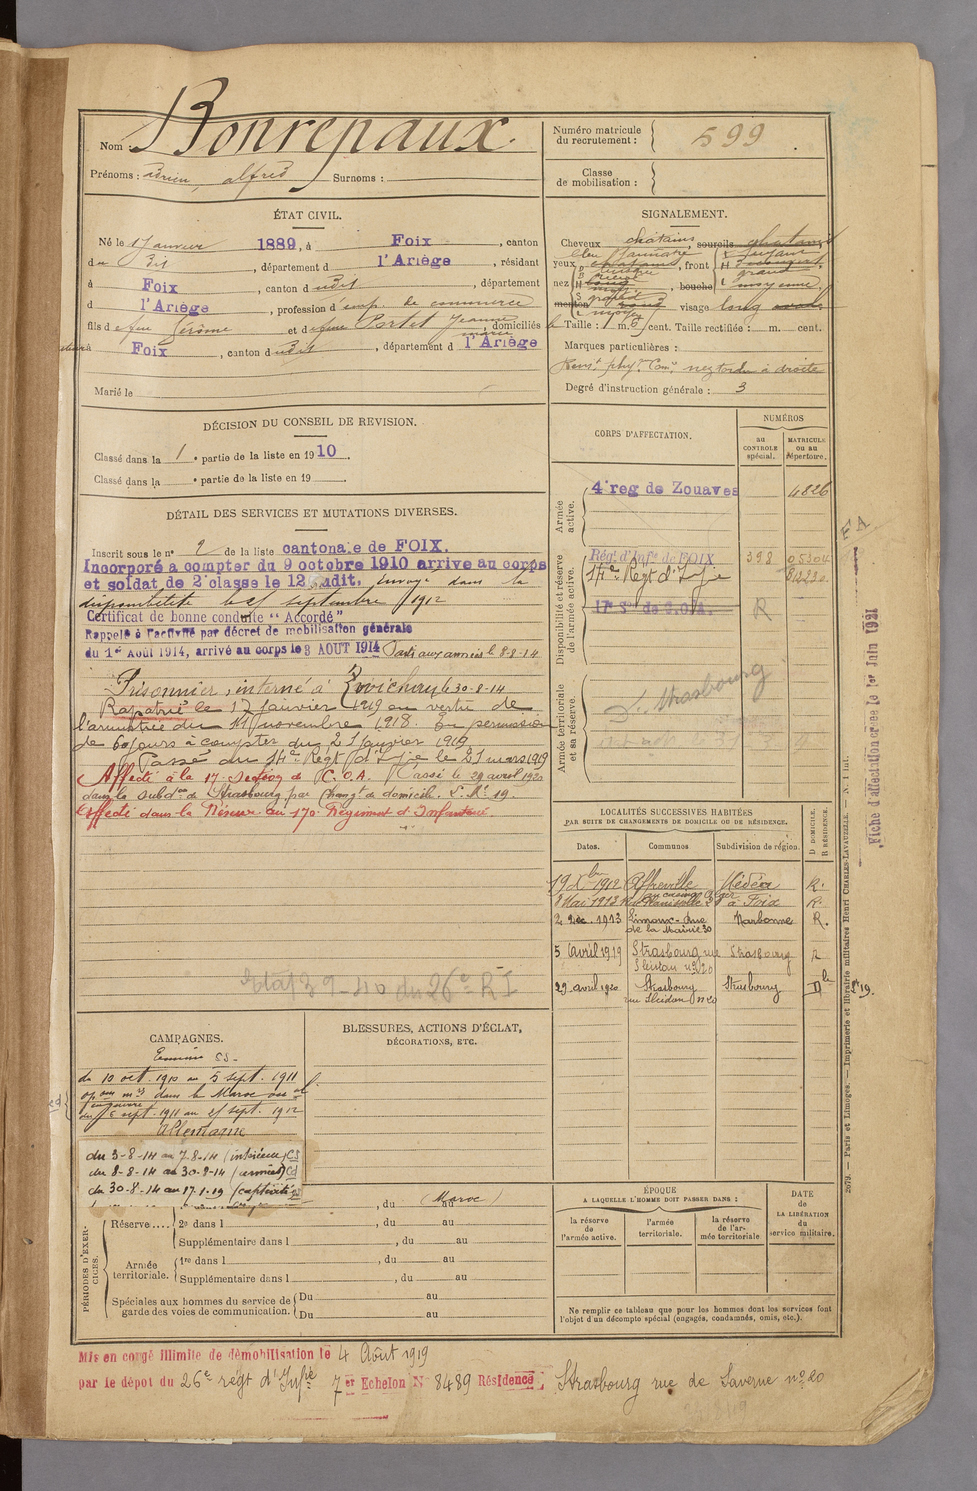 Nom : Bonrepaux
Prénoms : Adrien, alfred Surnoms :
Numéro matricule du recrutement : 599
Classe de mobilisation :
ÉTAT CIVIL.
Né le 17 janvier 1889, à Foix, canton
du dit, département d l'Ariège, résidant
à Foix, canton dudit, département
d l'Ariège, profession d'emp. de commerce
fils de feu Jérôme et de feue Portet Jeanne marie, domiciliés
à Foix, canton dudit, département d l'Ariège
Marié le
SIGNALEMENT.
Cheveux chatains, sourcils chatains
yeux bleu jaunatre, front fuyant
nez, bouche moyenne,
menton rond visage long
Taille : 1 m. cent. Taille rectifiée : m. cent.
Marques particulières :
nez tordu à droite
Degré d'instruction générale : 3
DÉCISION DU CONSEIL DE REVISION.
Classé dans la 1e partie de la liste en 1910.
Classé dans la e partie de la liste en 19
DÉTAIL DES SERVICES ET MUTATIONS DIVERSES.
Inscrit sous le no 2 de la liste cantonale de FOIX.
Incorporé a compter du 9 octobre 1910 arrive au corps
et soldat de 2e classe le 12 dudit, Envoyé dans la
disponibilité le 25 septembre 1912
Certificat de bonne conduite "Accordé"
Rappelé à l'activité par décret de mobilisation générale
du 1er Août 1914, arrivé au corps le 3 AOUT 1914 Parti aux armées le 8-8-14
Prisonnier, interné à Zwickau le 30-8-14
Rapatrié le 17 janvier 1919 en vertu de
l'armistice du 11 novembre 1918. En permission
de 60 jours à compter du 21 janvier 1919
Passé au 14e Régt d'Infie le 21 mars 1919
Affecté à la 17e Section de C.O.A. Passé le 29 avril 1920
dans la subdon de Strasbourg par Changt de domicile. D. No 19.
Affecté dans la Réserve au 170e Régiment d'Infanterie.
Etat 39-40 du 26e R I
CORPS D'AFFECTATION.
NUMÉROS
au CONTROLE spécial.
MATRICULE ou au Répertoire.
Armée active.
4e reg de Zouaves 4826
Disponibilité et réserve de l'armée active.
Régt d'Infie de FOIX 398 05304
14e Régt d'Infie
17e Son de C.O.A. R
Armée territoriale et sa réserve.
Strasbourg
LOCALITÉS SUCCESSIVES HABITÉES
PAR SUITE DE CHANGEMENTS DE DOMICILE OU DE RÉSIDENCE.
Dates. Communes Subdivision de région. D DOMICILE. R RÉSIDENCE.
19 Xbre 1912 Affreville Médéa R.
8 Mai 1913 à Foix R.
2 Déc. 1913 Limoux - Rue de la Mairie 30 Narbonne R.
5 avril 1919 Strasbourg rue Sleidan no 20 Strasbourg R
29 avril 1920 Strasbourg rue Sleidan no 20 Strasbourg Dle No 19.
CAMPAGNES.
du 10 oct. 1910 au 5 sept. 1911
dans le Maroc
du 6 sept. 1911 au 25 sept. 1912
Allemagne
du 3-8-14 au 7-8-14 (intérieur) CS
du 8-8-14 au 30-8-14 (armées) Cd
du 30-8-14 au 17-1-19 (captivité)
BLESSURES, ACTIONS D'ÉCLAT, DÉCORATIONS, ETC.
PÉRIODES D'EXERCICES.
, du (Maroc) au
Réserve.... 2e dans l , du au
Supplémentaire dans l , du au
Armée territoriale. 1re dans l , du au
Supplémentaire dans l , du au
Spéciales aux hommes du service de garde des voies de communication. Du au
Du au
ÉPOQUE
A LAQUELLE L'HOMME DOIT PASSER DANS :
la réserve de l'armée active.
l'armée territoriale.
la réserve de l'armée territoriale
DATE de LA LIBÉRATION du service militaire.
Ne remplir ce tableau que pour les hommes dont les services font
l'objet d'un décompte spécial (engagés, condamnés, omis, etc.).
Mis en congé illimité de démobilisation le 4 Août 1919
par le dépot du 26e régt d'Infie 7er Echelon No 8489 Résidence : Strasbourg rue de Saverne no 20
2079. — Paris et Limoges. — Imprimerie et librairie militaires Henri CHARLES-LAVAUZELLE. — N. 1 int.
Fiche d'affectation créée le 1er Juin 1921